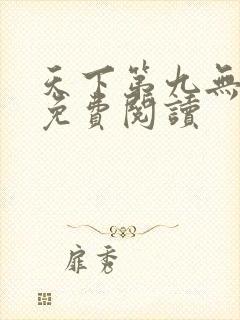 天下第九無
免費閱讀
扉秀